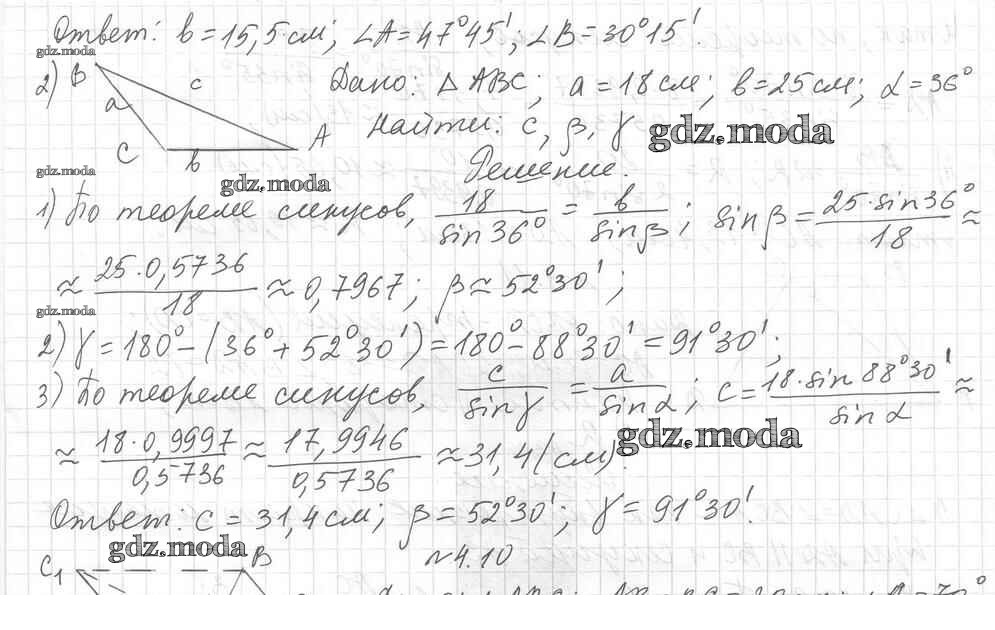 Ответ: b = 15,5 см; ∠A = 47°45'; ∠B = 30°15'.
gdz.moda
2) B c a A C b
Дано: △ABC; a = 18 см; b = 25 см; α = 36°
Найти: c, β, γ
gdz.moda
Решение.
gdz.moda
gdz.moda
1) По теореме синусов, 18/sin 36° = b/sin β; sin β = 25·sin 36°/18 ≈
≈ 25·0,5736/18 ≈ 0,7967; β ≈ 52°30';
gdz.moda
2) γ = 180° − (36° + 52°30') = 180° − 88°30' = 91°30';
3) По теореме синусов, c/sin γ = a/sin α; c = 18·sin 88°30'/sin α ≈
gdz.moda
≈ 18·0,9997/0,5736 ≈ 17,9946/0,5736 ≈ 31,4 (см).
Ответ: c = 31,4 см; β = 52°30'; γ = 91°30'.
gdz.moda
№4.10
C₁ B